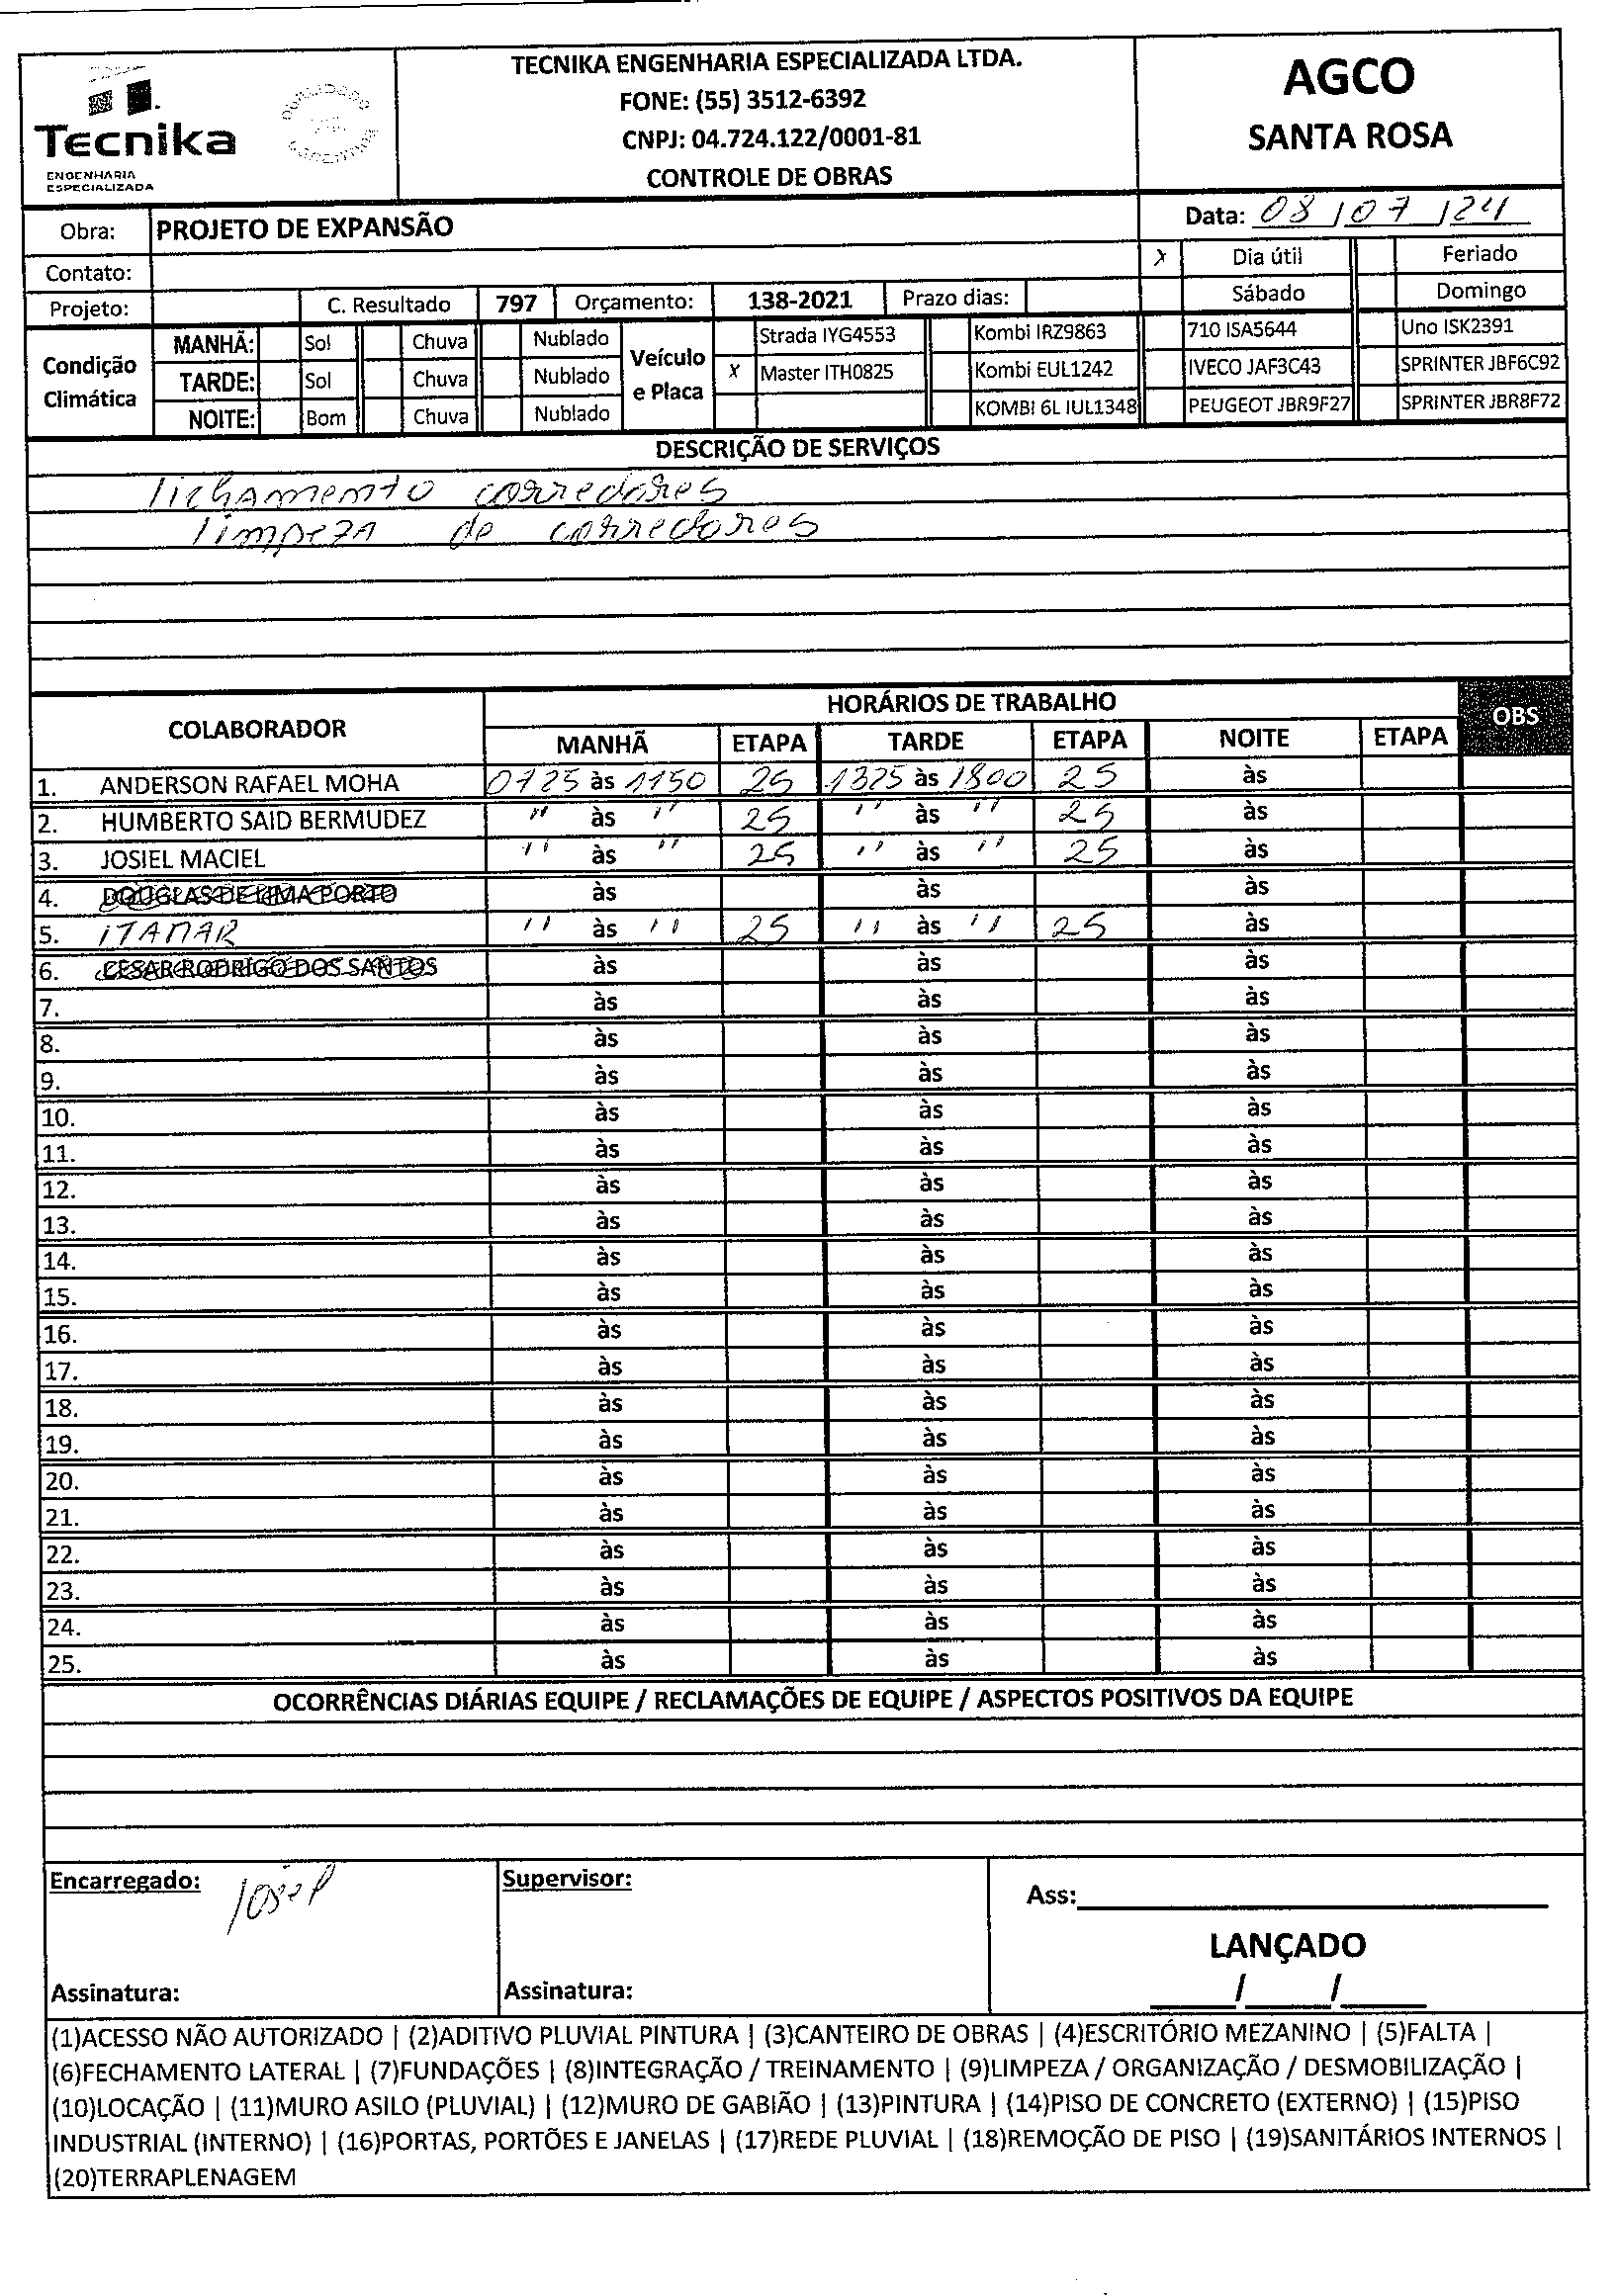 Tecnika
ENGENHARIA
ESPECIALIZADA
TECNIKA ENGENHARIA ESPECIALIZADA LTDA.
FONE: (55) 3512-6392
CNPJ: 04.724.122/0001-81
CONTROLE DE OBRAS
AGCO
SANTA ROSA
Obra: PROJETO DE EXPANSÃO Data: 08/07/24
Contato: X Dia útil Feriado
Projeto: C. Resultado 797 Orçamento: 138-2021 Prazo dias: Sábado Domingo
Condição Climática Veículo e Placa
MANHÃ: Sol Chuva Nublado Strada IYG4553 Kombi IRZ9863 710 ISA5644 Uno ISK2391
TARDE: Sol Chuva Nublado X Master ITH0825 Kombi EUL1242 IVECO JAF3C43 SPRINTER JBF6C92
NOITE: Bom Chuva Nublado KOMBI 6L IUL1348 PEUGEOT JBR9F27 SPRINTER JBR8F72
DESCRIÇÃO DE SERVIÇOS
lichamento corredores
limpeza de corredores
COLABORADOR HORÁRIOS DE TRABALHO OBS
MANHÃ ETAPA TARDE ETAPA NOITE ETAPA
1. ANDERSON RAFAEL MOHA 0725 às 1150 25 1325 às 1800 25 às
2. HUMBERTO SAID BERMUDEZ " às " 25 " às " 25 às
3. JOSIEL MACIEL " às " 25 " às " 25 às
4. DOUGLAS DE LIMA PORTO às às às
5. ITAMAR " às " 25 " às " 25 às
6. CESAR RODRIGO DOS SANTOS às às às
7. às às às
8. às às às
9. às às às
10. às às às
11. às às às
12. às às às
13. às às às
14. às às às
15. às às às
16. às às às
17. às às às
18. às às às
19. às às às
20. às às às
21. às às às
22. às às às
23. às às às
24. às às às
25. às às às
OCORRÊNCIAS DIÁRIAS EQUIPE / RECLAMAÇÕES DE EQUIPE / ASPECTOS POSITIVOS DA EQUIPE
Encarregado: Supervisor: Ass:
LANÇADO
Assinatura: Assinatura: / /
(1)ACESSO NÃO AUTORIZADO | (2)ADITIVO PLUVIAL PINTURA | (3)CANTEIRO DE OBRAS | (4)ESCRITÓRIO MEZANINO | (5)FALTA |
(6)FECHAMENTO LATERAL | (7)FUNDAÇÕES | (8)INTEGRAÇÃO / TREINAMENTO | (9)LIMPEZA / ORGANIZAÇÃO / DESMOBILIZAÇÃO |
(10)LOCAÇÃO | (11)MURO ASILO (PLUVIAL) | (12)MURO DE GABIÃO | (13)PINTURA | (14)PISO DE CONCRETO (EXTERNO) | (15)PISO
INDUSTRIAL (INTERNO) | (16)PORTAS, PORTÕES E JANELAS | (17)REDE PLUVIAL | (18)REMOÇÃO DE PISO | (19)SANITÁRIOS INTERNOS |
(20)TERRAPLENAGEM